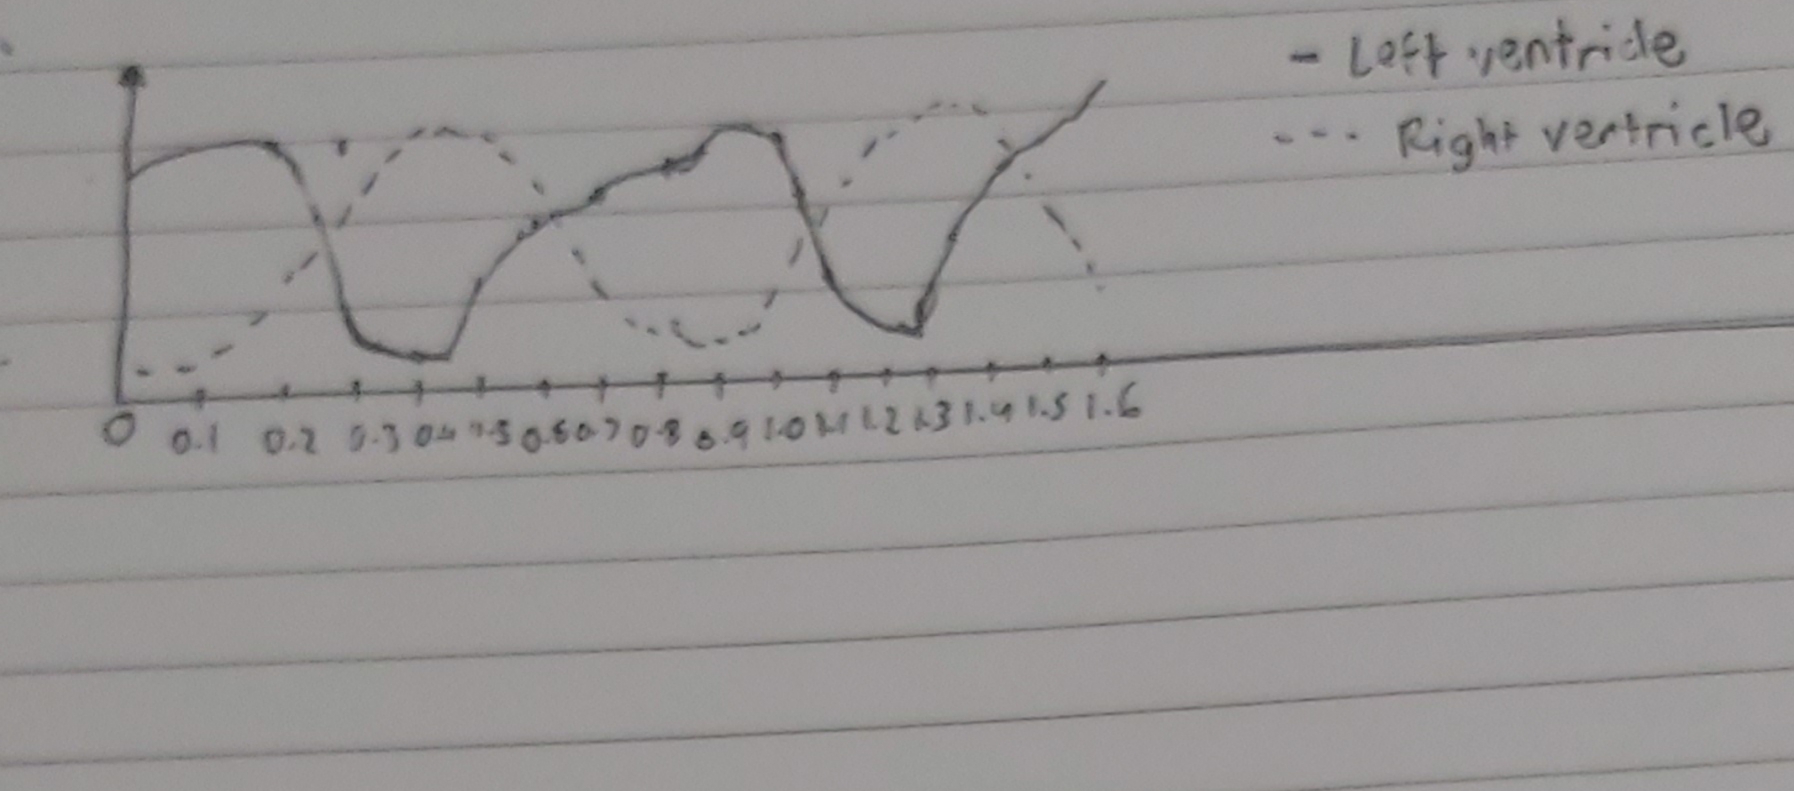 - Left ventricle
--- Right ventricle
0 0.1 0.2 0.3 0.4 0.5 0.6 0.7 0.8 0.9 1.0 1.1 1.2 1.3 1.4 1.5 1.6